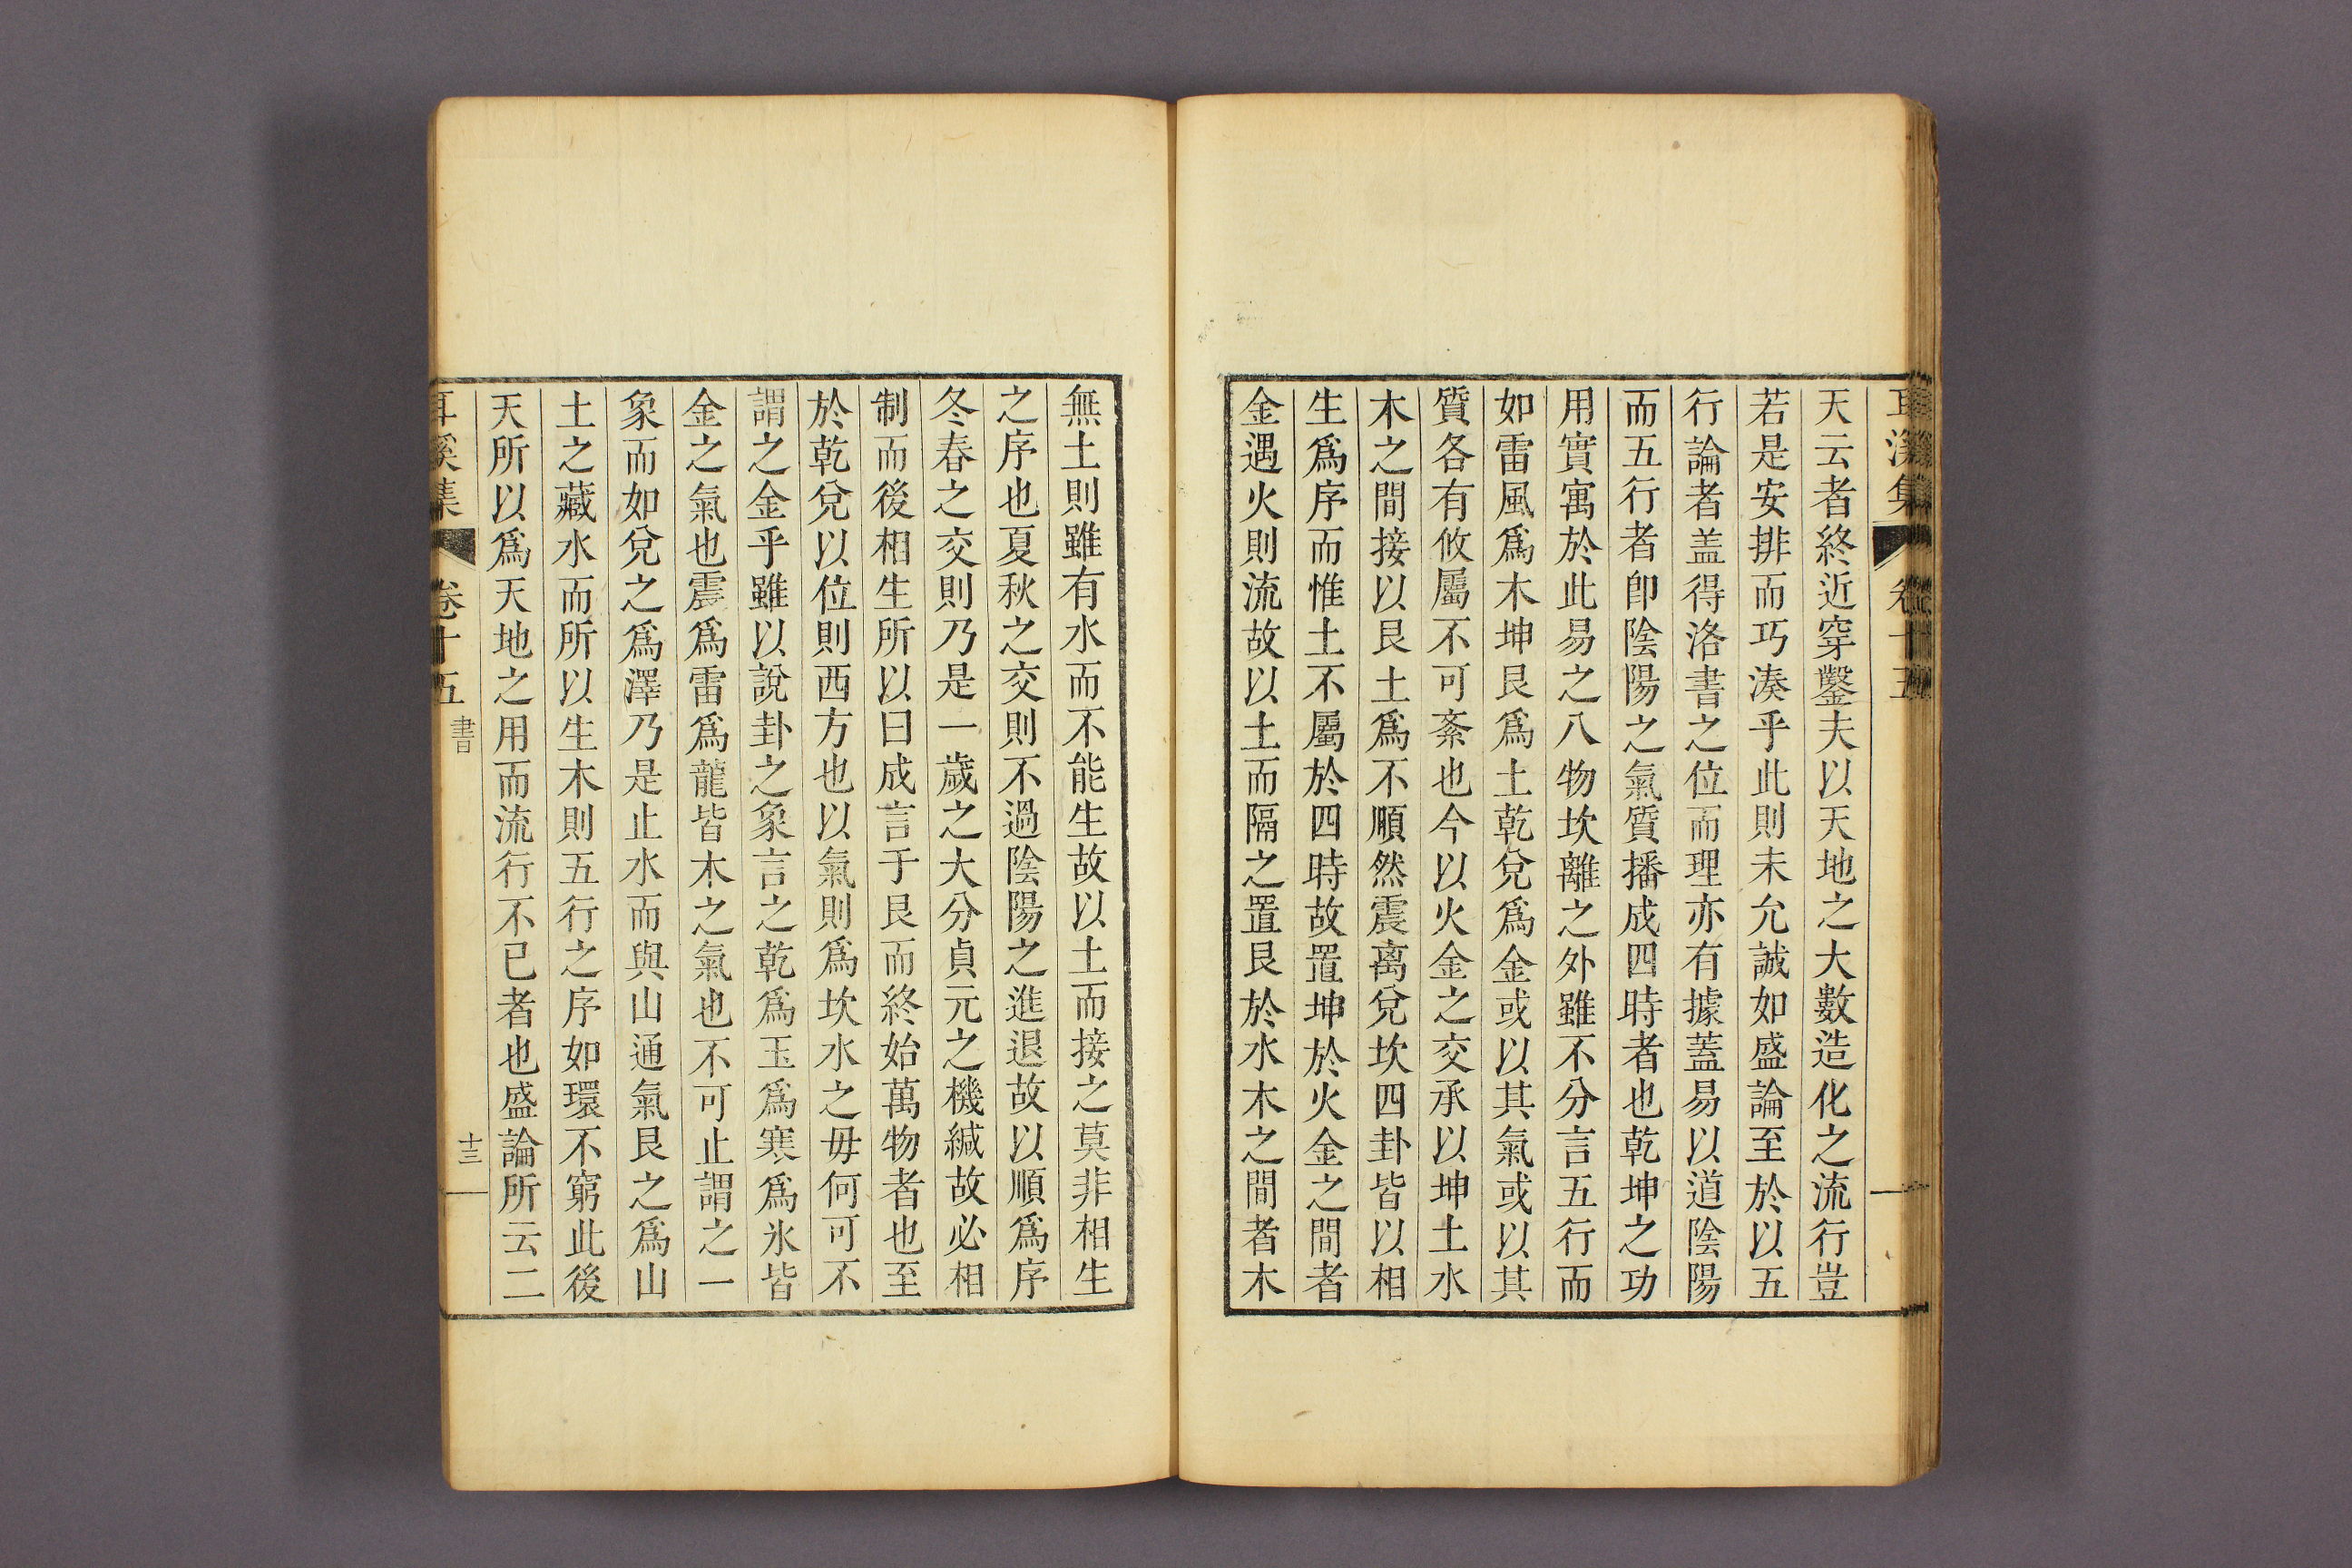 耳溪集 卷十五
天云者終近穿鑿夫以天地之大數造化之流行豈
若是安排而巧湊乎此則未允誠如盛論至於以五
行論者盖得洛書之位而理亦有據蓋易以道陰陽
而五行者卽陰陽之氣質播成四時者也乾坤之功
用實寓於此易之八物坎離之外雖不分言五行而
如雷風爲木坤艮爲土乾兌爲金或以其氣或以其
質各有攸屬不可紊也今以火金之交承以坤土水
木之間接以艮土爲不順然震离兌坎四卦皆以相
生爲序而惟土不屬於四時故置坤於火金之間者
金遇火則流故以土而隔之置艮於水木之間者木
無土則雖有水而不能生故以土而接之莫非相生
之序也夏秋之交則不過陰陽之進退故以順爲序
冬春之交則乃是一歲之大分貞元之機緘故必相
制而後相生所以曰成言于艮而終始萬物者也至
於乾兌以位則西方也以氣則爲坎水之毋何可不
謂之金乎雖以說卦之象言之乾爲玉爲寒爲氷皆
金之氣也震爲雷爲龍皆木之氣也不可止謂之一
象而如兌之爲澤乃是止水而與山通氣艮之爲山
土之藏水而所以生木則五行之序如環不窮此後
天所以爲天地之用而流行不已者也盛論所云二
耳溪集 卷十五 書 十三